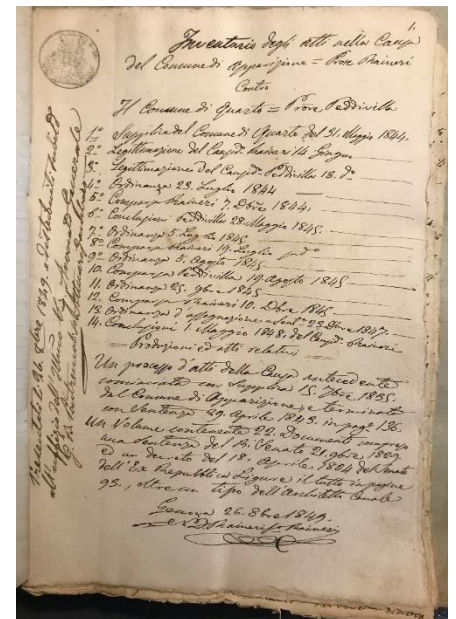 1.
Inventario degli atti nella Causa
del Comune di Apparizione = Proc.e Raineri
Contro
Il Comune di Quarto = Proc.e Peddivilla
1.° Supplica del Comune di Quarto del 31. Maggio 1844.
2.° Legittimazione del Causid.o Raineri 14 Giugno
3.° Legittimazione del Causid.o Peddivilla 18. d.o
4.° Ordinanza 23. Luglio 1844
5.° Comparsa Raineri 7. Dbre 1844.
6.° Conclusioni Peddivilla 28. Maggio 1845.
7.° Ordinanza 5. Luglio 1845
8.° Comparsa Raineri 19. Luglio
9.° Ordinanza 5. Agosto 1845
10. Comparsa Peddivilla 19. Agosto 1845
11. Ordinanza 25. 9bre 1845
12. Comparsa Raineri 10. Dbre 1845
13. Ordinanza d'assegnazione a Sent.a 23. Dbre 1847.
14. Conclusioni 1. Maggio 1848. del Causid.o Raineri
Produzioni ed atti relativi
Un processo d'atti della Causa antecedente
cominciato con Supplica 15. 8bre 1835.
del Comune di Apparizione, e terminato
con Sentenza 29. Aprile 1843. in pag.e 136.
Un Volume contenente 22. Documenti compreso
una Sentenza del R. Senato 21. 9bre 1809.
e un decreto del 18. Aprile 1804 del Senato
dell'Ex Repubblica Ligure, il tutto in pagine
93., oltre un tipo dell'Architetto Canale
Genova 26. 8bre 1849.
Raineri
Presentato li 26. 8bre 1849. e distribuito
all'ufficio dell'Avv.o Generale